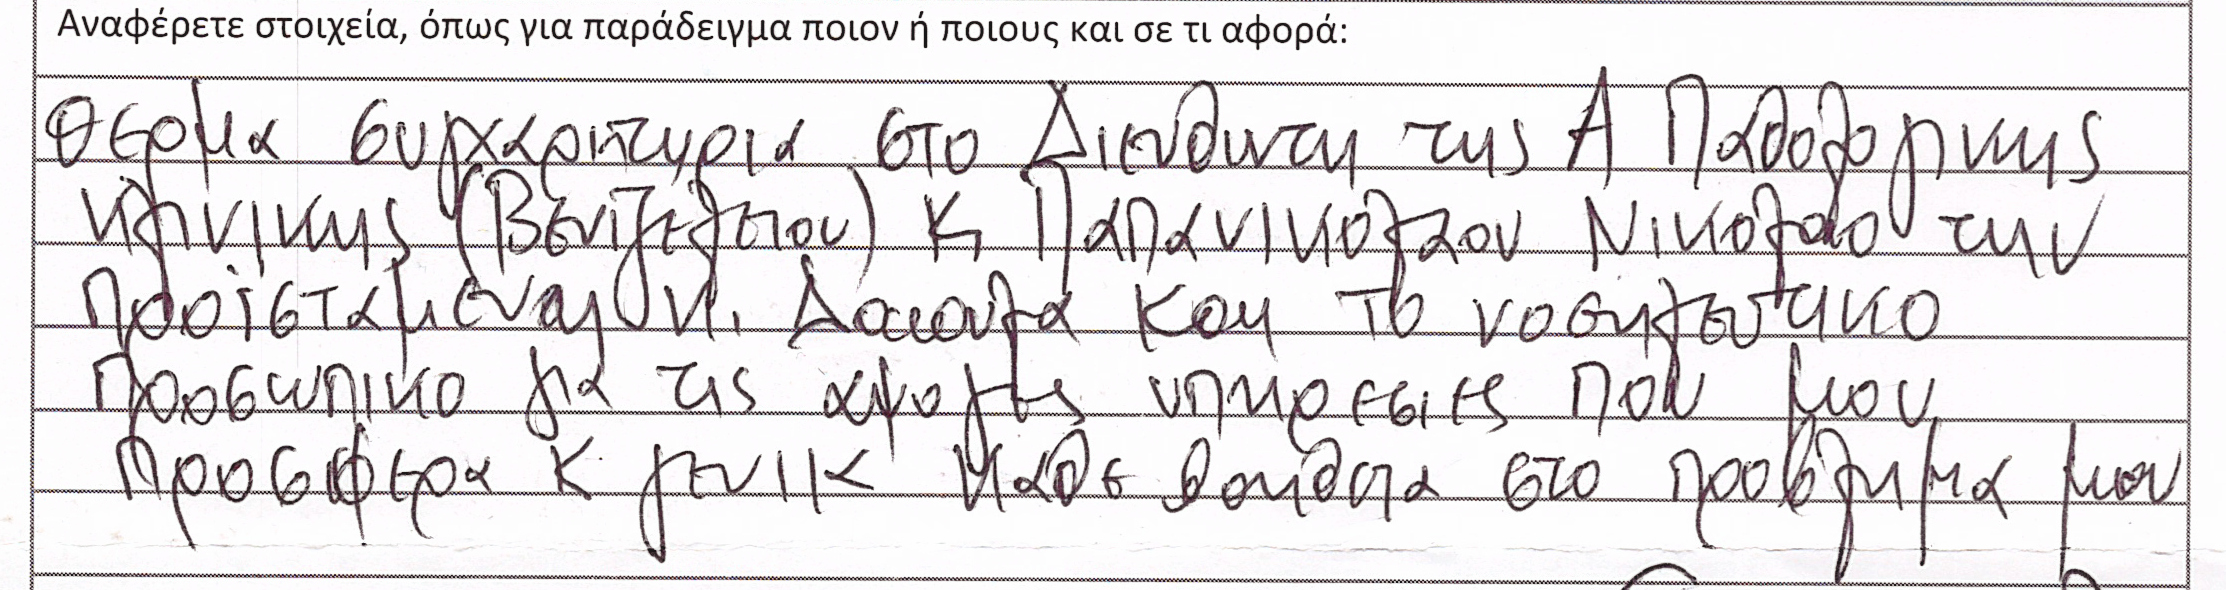 Αναφέρετε στοιχεία, όπως για παράδειγμα ποιον ή ποιους και σε τι αφορά:
Θερμα συγχαριτηρια στο Διευθυντη της Α Παθολογικης
κλινικης (Βενιζελειου) κ Παπανικολαου Νικολαο την
προϊσταμενη κ. Δακουλα και το νοσηλευτικο
προσωπικο για τις αψογες υπηρεσιες που μου
προσφερα κ γενικ καθε βοηθεια στο προβλημα μου